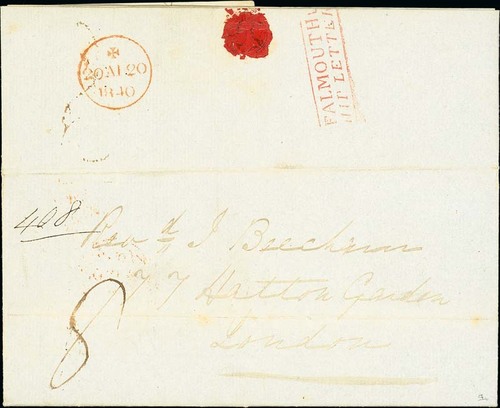 20 AU 20
1840
FALMOUTH
SHIP LETTER
408
Revd J Beecham
77 Hatton Garden
London
8